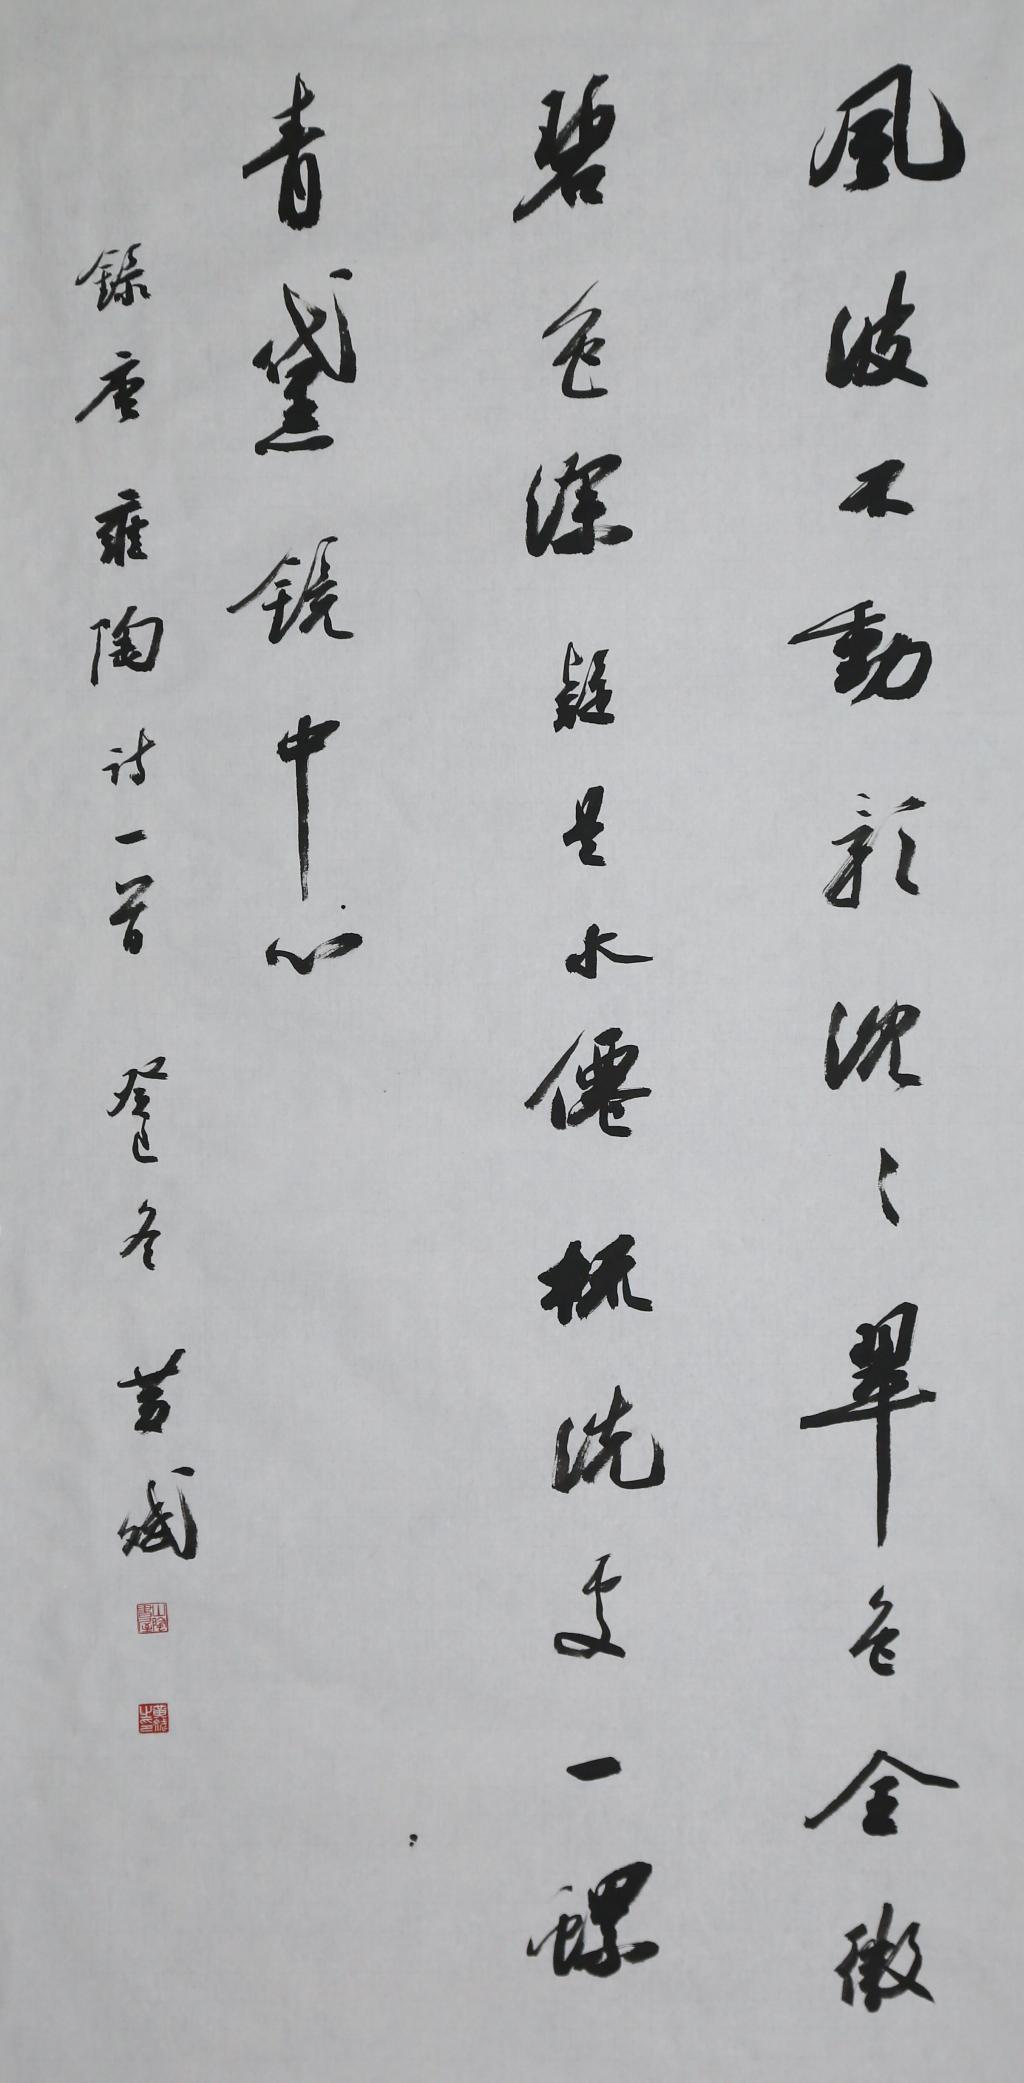 風波不動影沈〻翠色全微
碧色深疑是水僊梳洗處一螺
青黛镜中心
錄唐雍陶诗一首 癸巳冬 黄斌